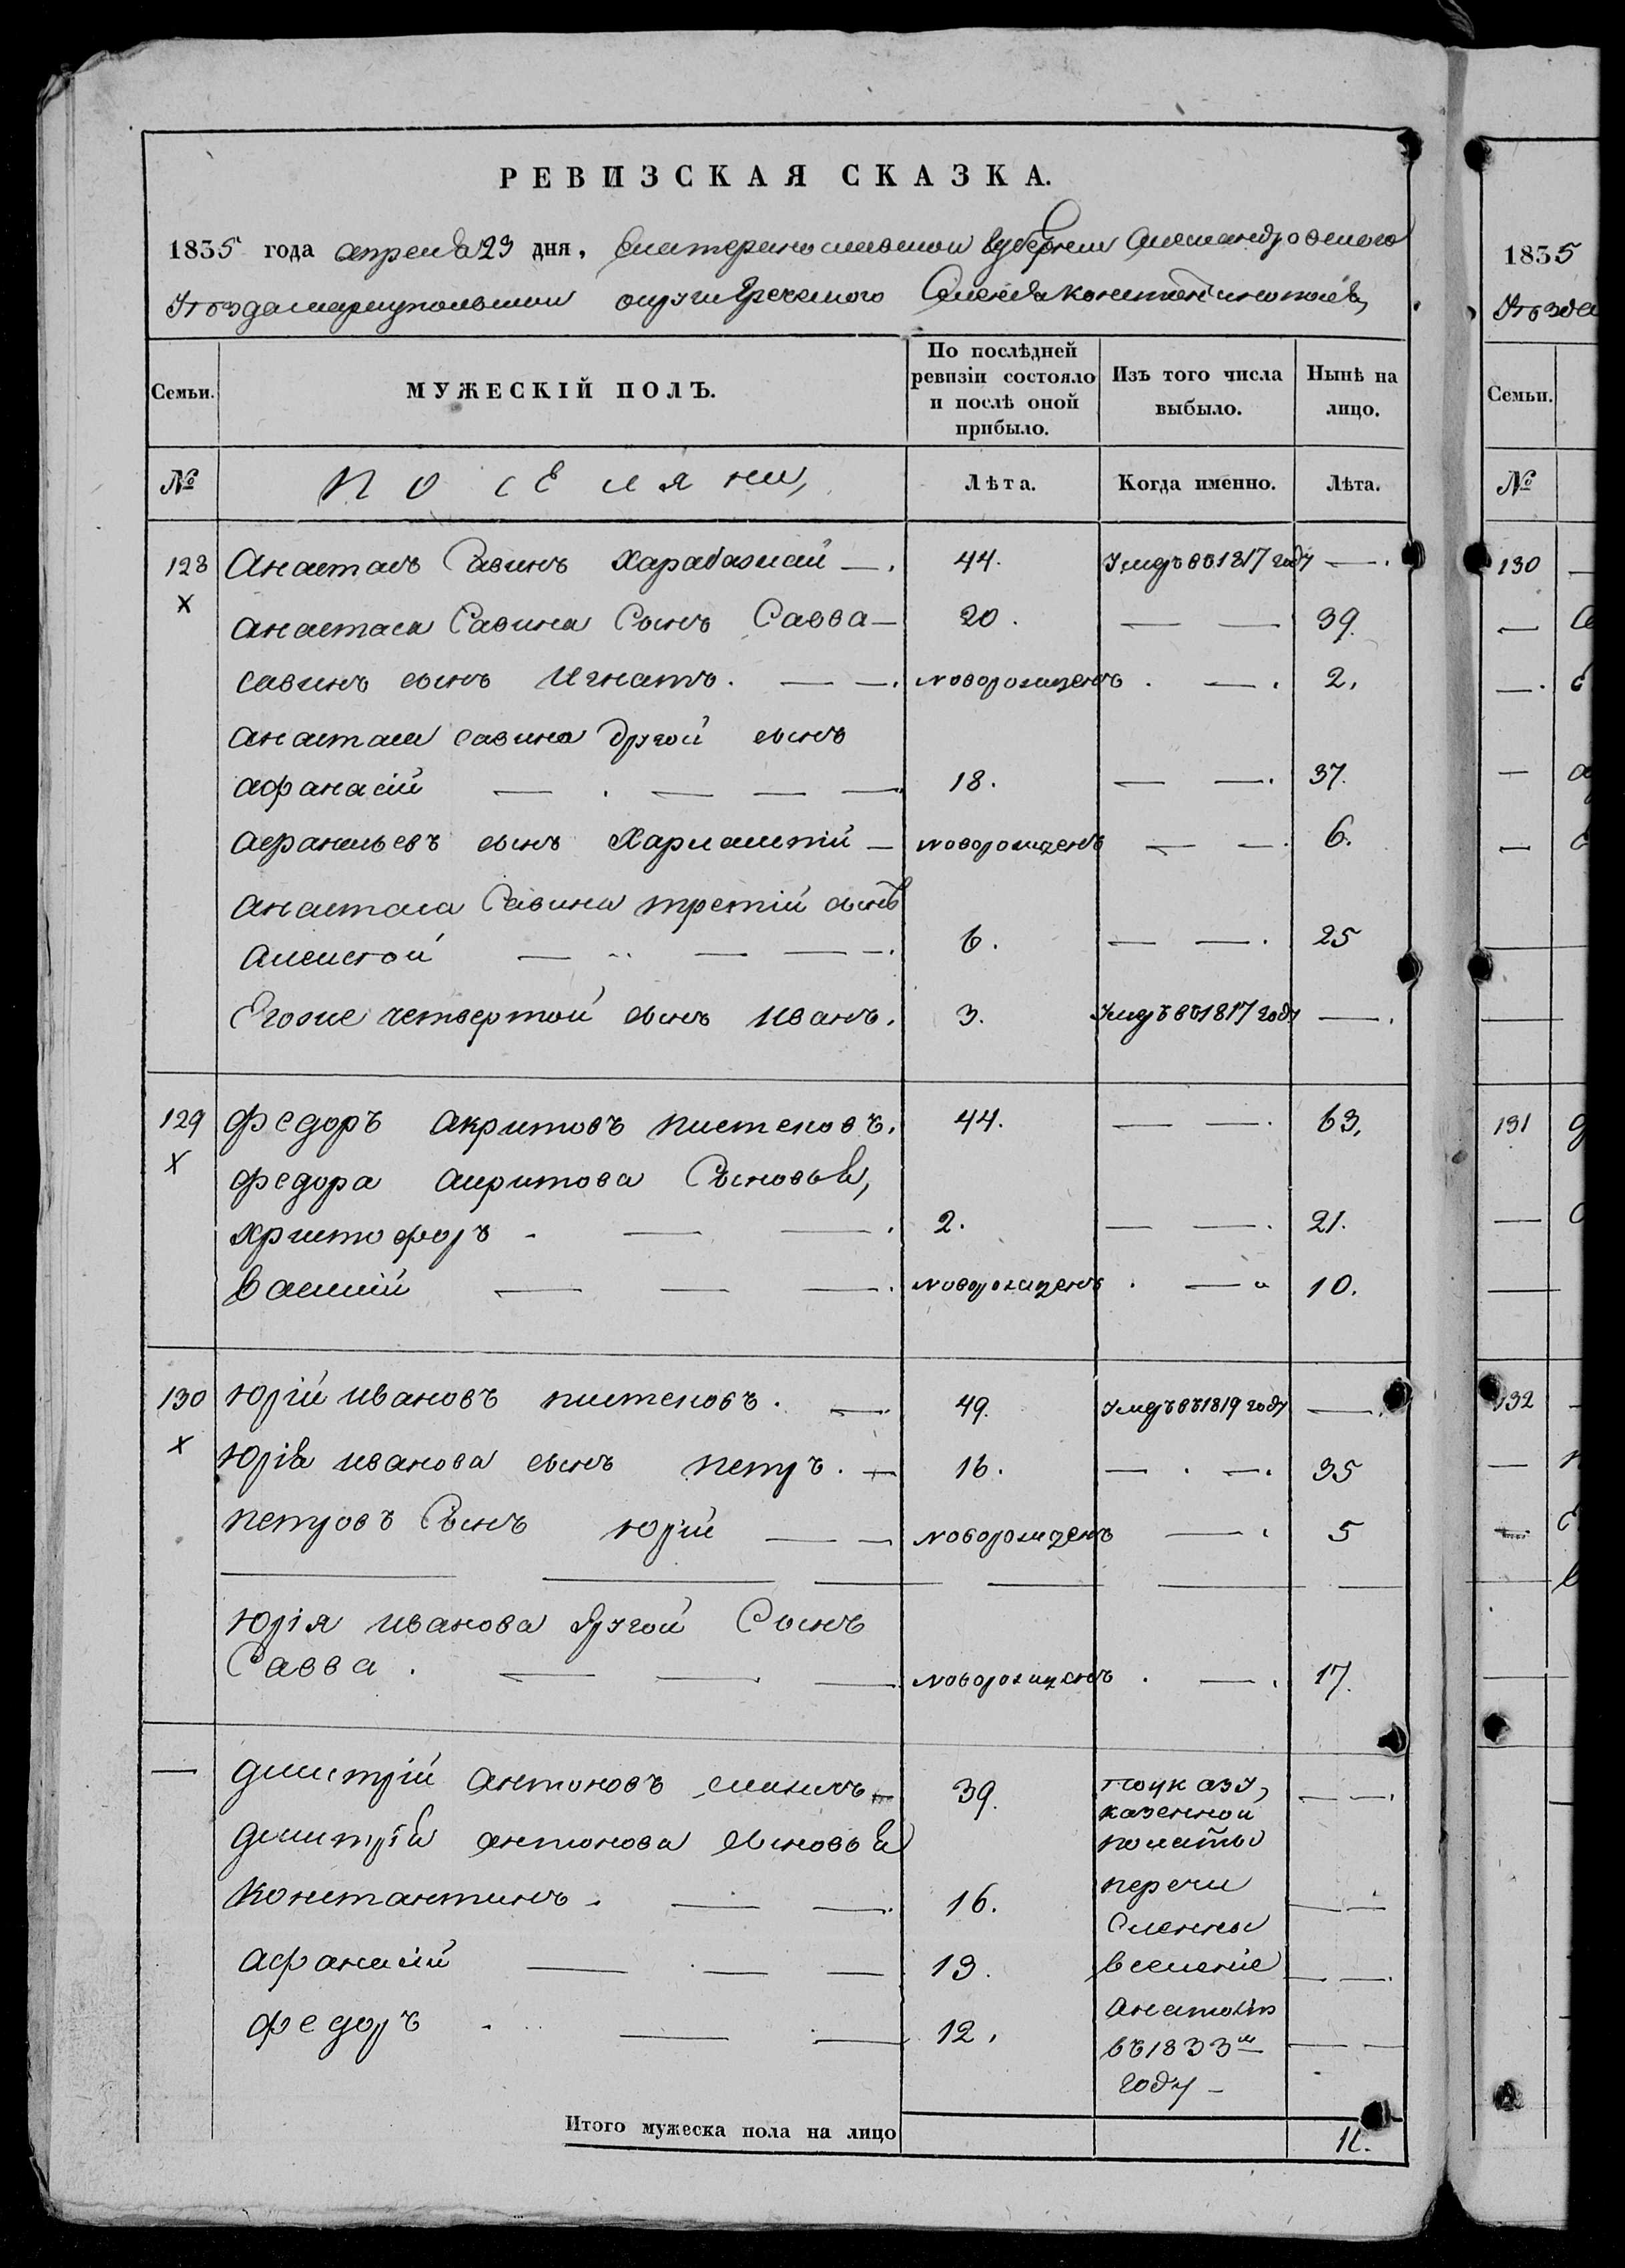 РЕВИЗСКАЯ СКАЗКА.
1835 года апреля 23 дня, Екатеринославской Губернии Александровского
Уезда мариупольской округи Греческого
Семьи. МУЖЕСКІЙ ПОЛЪ. По послѣдней ревизіи состояло и послѣ оной прибыло. Изъ того числа выбыло. Нынѣ на лицо.
№ поселяни, Лѣта. Когда именно. Лѣта.
128 Анастасъ Савинъ Харабажай — . 44. Умеръ въ 1817 году — .
х
анастаса Савина Сынъ Савва — 20. — — 39.
савинъ сынъ Игнатъ. — — . новорожденъ . — . 2.
анастаса савина другой сынъ
афанасій — . — — — . 18. — — . 37.
афанасьевъ сынъ Харлампій — новорожденъ — — . 6.
анастаса Савина третій сынъ
алексей — — — — . 6. — — . 25
Егоже четвертой сынъ иванъ. 3. Умеръ въ 1817 году — .
129 федоръ акритовъ пистеновъ. 44. — — . 63.
х
федора акритова Сыновья,
христофоръ - — — . 2. — — . 21.
василій — — — . новорожденъ . — 10.
130 юрій ивановъ пистеновъ. — . 49. Умеръ въ 1819 году — .
х
юрія иванова сынъ петръ. — 16. — . — . 35
петровъ Сынъ юрій — — новорожденъ — . 5
юрія иванова другой Сынъ
Савва. — — — новорожденъ . — . 17.
— дмитрій антоновъ 39. поуказу — — .
казенной
дмитрія антонова сыновья полаты
константинъ. — — . 16. перечи — —
сленны
афанасій — . — — 13. вселеніе — — .
федоръ . — — 12. въ 1833м — —
году —
Итого мужеска пола на лицо 11.
1835
Уезда
Семьи.
№
130
131
132